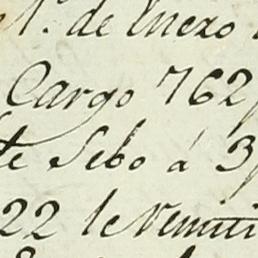 1º. de Enero
Cargo 762
te Sebo á 3
22 le Remiti